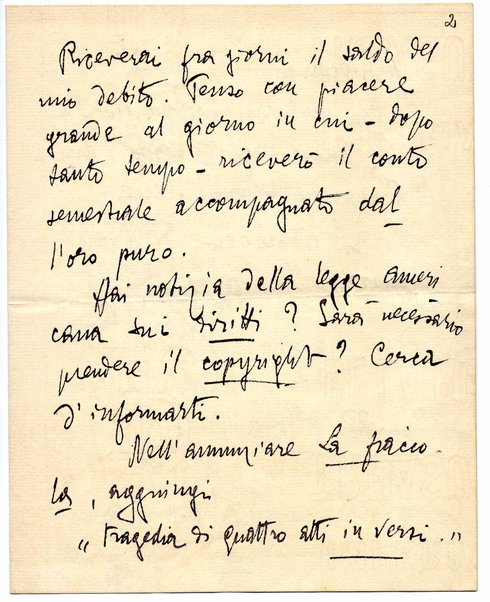 2
Riceverai fra giorni il saldo del
mio debito. Penso con piacere
grande al giorno in cui – dopo
tanto tempo – riceverò il conto
semestrale accompagnato dal
l'oro puro.
Hai notizia della legge ameri
cana sui diritti? Sarà necessario
prendere il copyright? Cerca
d'informarti.
Nell'annunziare La fiacco
la, aggiungi
„ tragedia di quattro atti in versi."